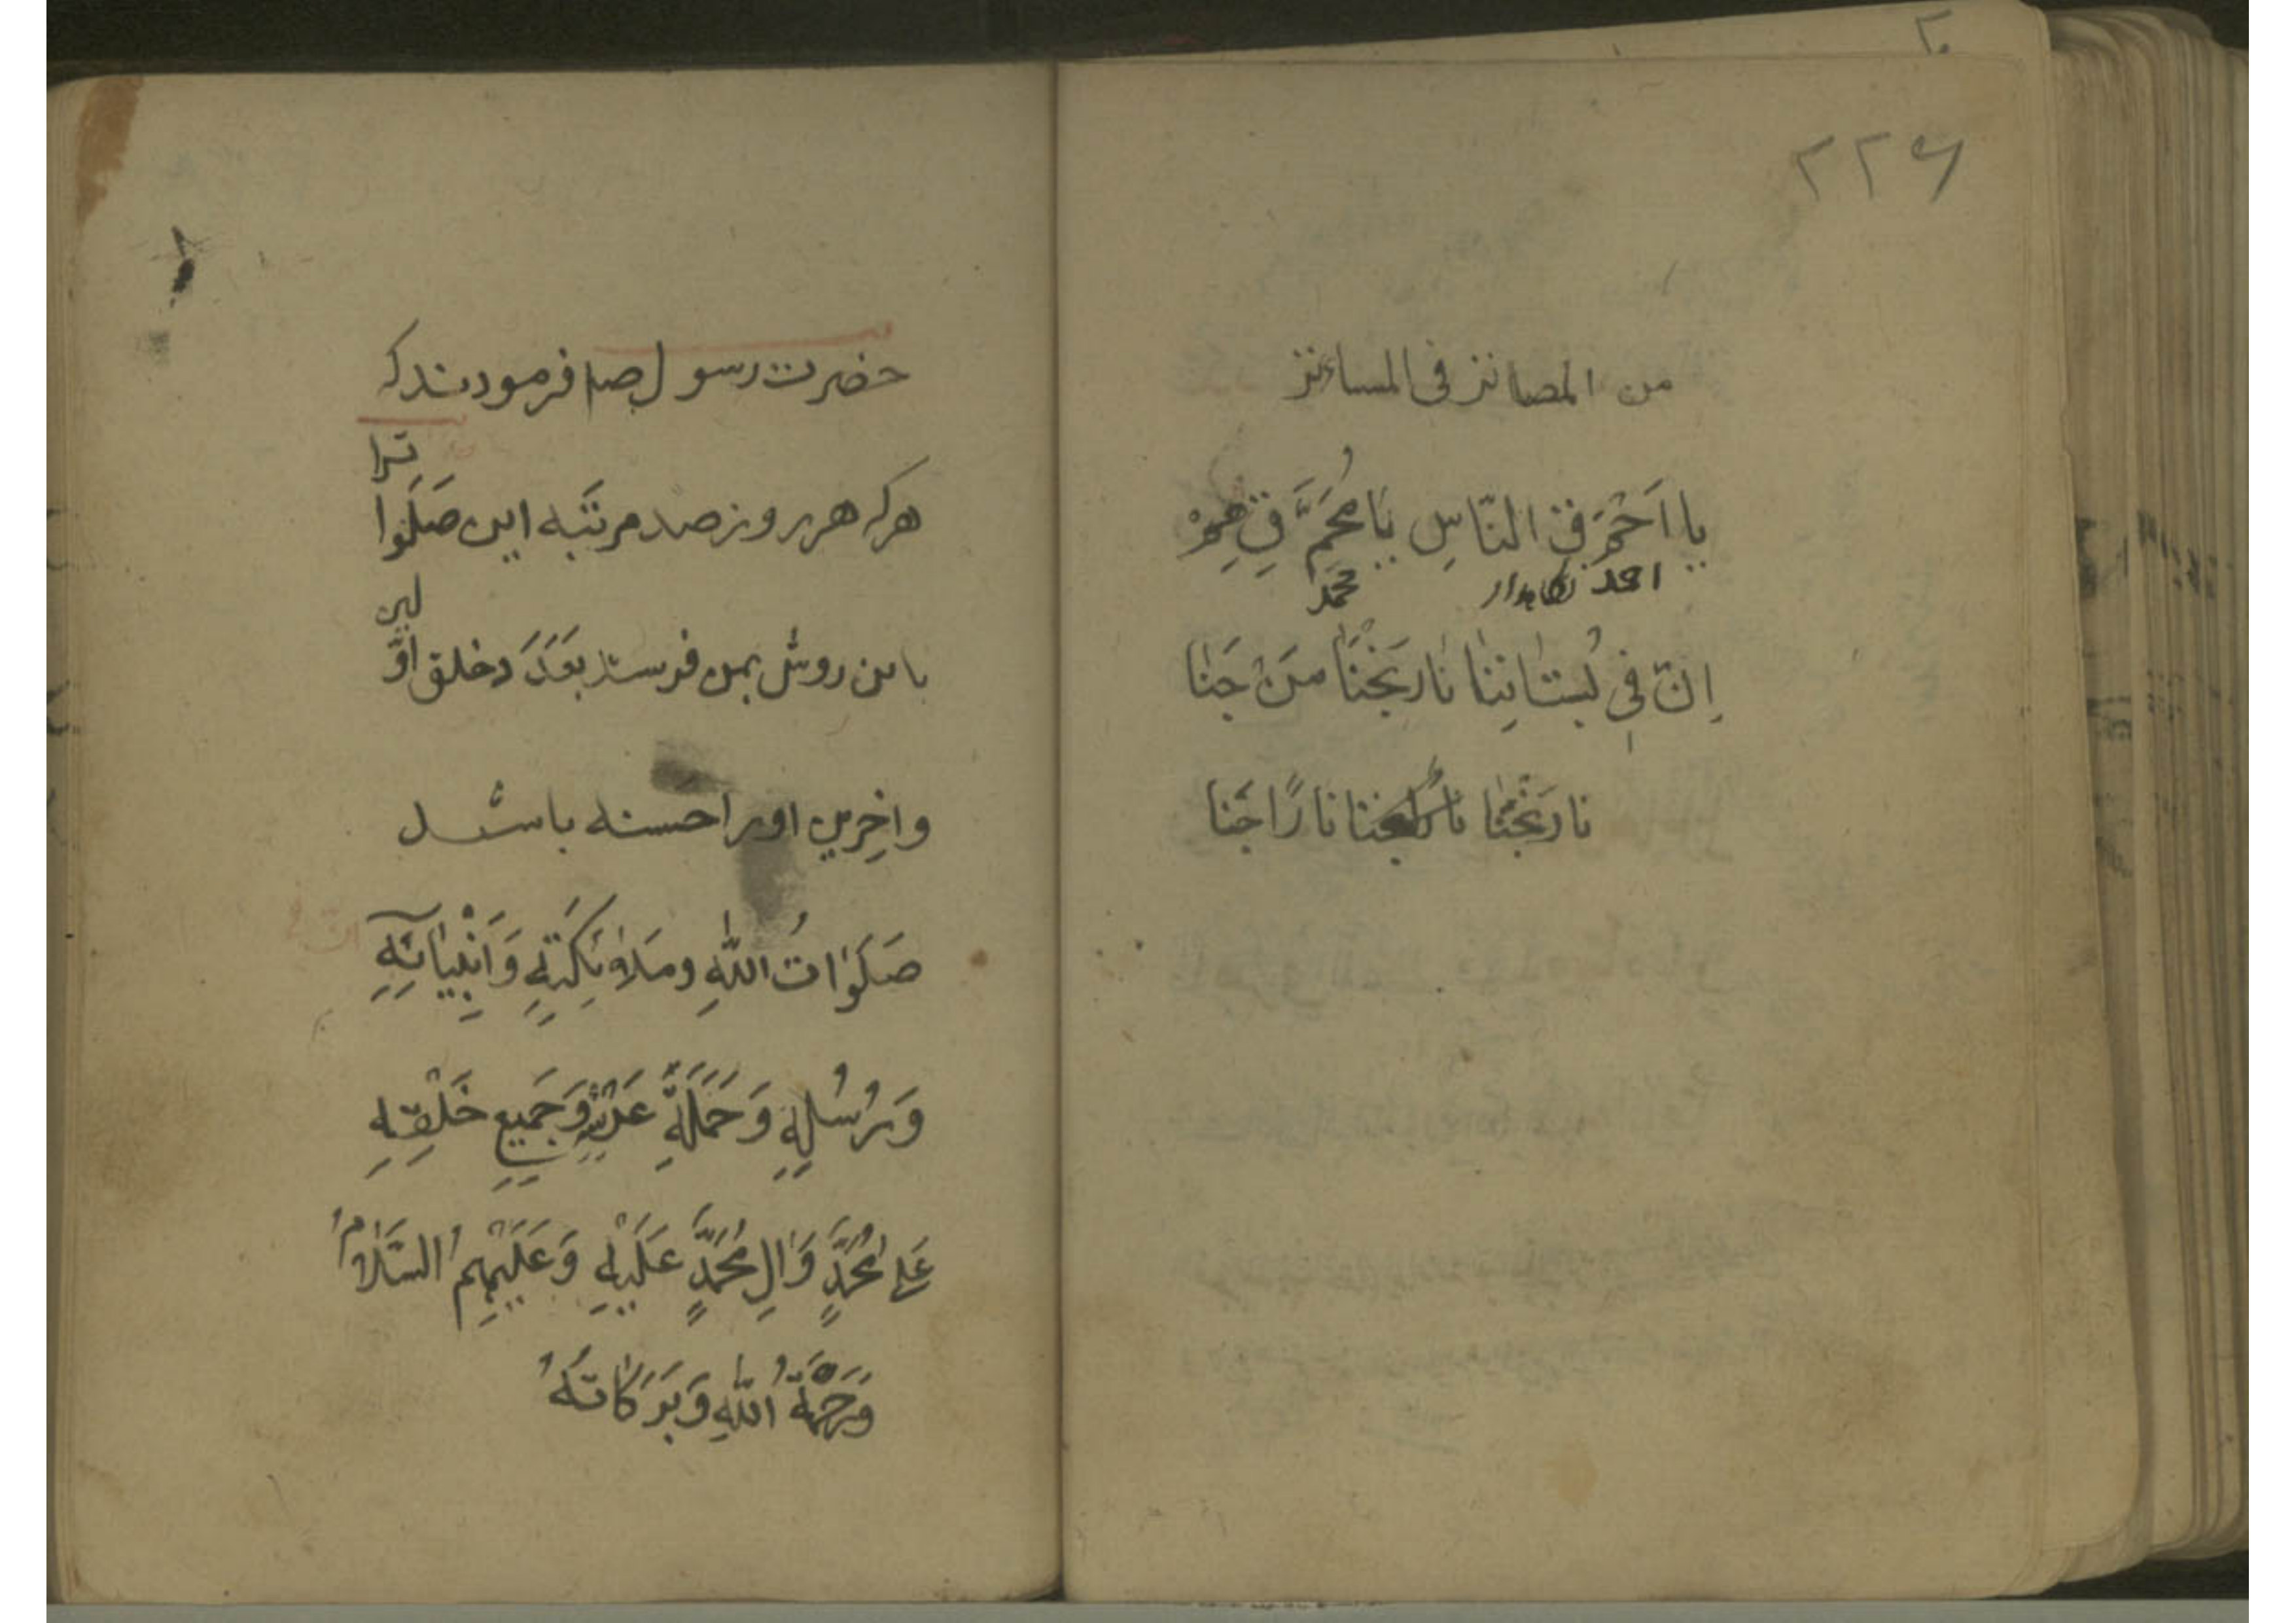 ۲۲۶
من المصانز فی المساءنز
یا اَحْمَ فِی النّاسِ یَا مُحَمَّ فِی هِمْ
احمد نگاهدار محمد
اِنّ فی بُستٰانِنٰا نٰارَنْجُنٰا مَنْ جَنٰا
نارَنْجُنٰا نارًا جَنا
حضرت رسول صلم فرمودند که
هر که هر روز صد مرتَبه این صَلَوا
ترا
باین روش بمن فرستد بعَدَدَ خلق اوّ
لین
واخِرین اورا حَسنه باشد
صَلَوٰاتُ اللّٰهِ ومَلاٰئِکَتِهِ وَ اَنْبِیٰائِهِ
وَ رُسُلِهِ وَ حَمَلَةِ عَرْشِهِ وَ جَمیعِ خَلْقِهِ
عَلٰی مُحَمَّدٍ وَ اٰلِ مُحَمَّدٍ عَلَیْهِ وَ عَلَیْهِمُ السَّلاٰمُ
وَ رَحْمَةُ اللّٰهِ وَ بَرَکٰاتُهُ